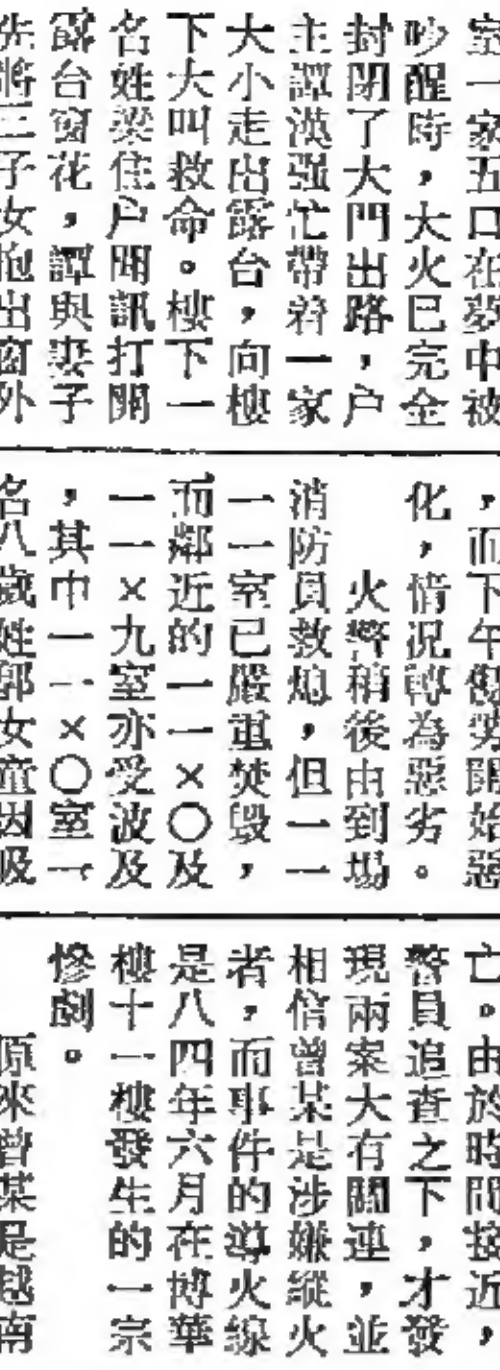 室一家五口在夢中被
吵醒時，大火已完全
封閉了大門出路，户
主譚漢强忙帶着一家
大小走出露台，向樓
下大叫救命。樓下一
名姓梁住户聞訊打開
露台窗花，譚與妻子
先將三子女抱出窗外
，而下午傷勢開始惡
化，情況轉為惡劣。
火警稍後由到場
消防員救熄，但一一
一一室已嚴重焚毁，
而鄰近的一一×〇及
一一×九室亦受波及
，其中一一×〇室一
名八歲姓郭女童因吸
亡。由於時間接近，
警員追查之下，才發
現兩案大有關連，並
相信曾某是涉嫌縱火
者，而事件的導火線
是八四年六月在博華
樓十一樓發生的一宗
慘劇。
原來曾某是越南